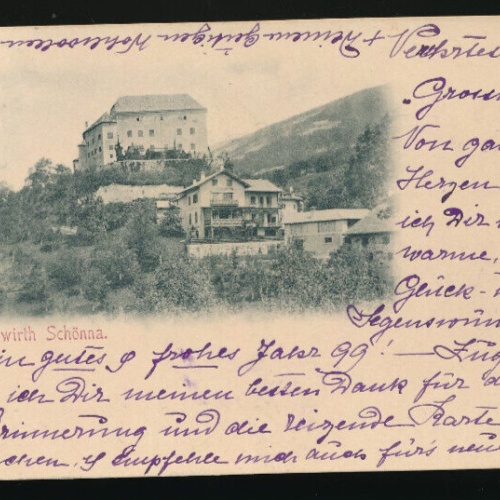 + Deinem Gütigen Wohlwollen
Verehrteste
„Gross
Von gan
Herzen
ich Dir
warme,
Glück-
Segenswün
wirth Schönna.
in gutes & frohes Jahr 99! — Füg
ich Dir meinen besten Dank für d
rinnerung und die reizende Karte
chen, & Empfehle mich auch für's neu